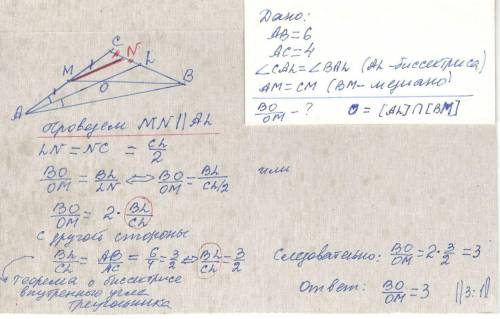 Дано:
AB=6
AC=4
∠CAL=∠BAL (AL-биссектриса)
AM=CM (BM-медиана)
BO/OM - ? O = [AL]∩[BM]
C
N
L
M
O
B
A
Проведем MN||AL
LN=NC = CL/2
BO/OM = BL/LN ⇔ BO/OM = BL/CL/2
или
BO/OM = 2·BL/CL
С другой стороны
BL/CL = AB/AC = 6/4 = 3/2 ⇔ BL/CL = 3/2
Теорема о биссектрисе
внутреннего угла
треугольника
Следовательно: BO/OM = 2·3/2 = 3
Ответ: BO/OM = 3 ||3:1||